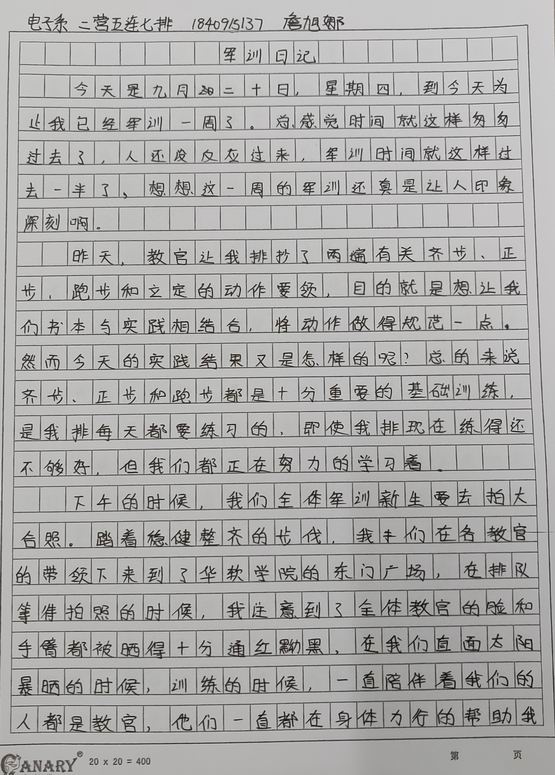 电子系 二营五连七排 1840915137 詹旭娜
军训日记
今天是九月二十日，星期四，到今天为
止我已经军训一周了。总感觉时间就这样匆匆
过去了，人还没反应过来，军训时间就这样过
去一半了、想想这一周的军训还真是让人印象
深刻啊。
昨天，教官让我排抄了两遍有关齐步、正
步、跑步和立定的动作要领，目的就是想让我
们书本与实践相结合，将动作做得规范一点。
然而今天的实践结果又是怎样的呢？总的来说
齐步、正步和跑步都是十分重要的基础训练，
是我排每天都要练习的，即使我排现在练得还
不够好，但我们都正在努力的学习着。
下午的时候，我们全体军训新生要去拍大
合照。踏着稳健整齐的步伐，我们在各教官
的带领下来到了华软学院的东门广场，在排队
等待拍照的时候，我注意到了全体教官的脸和
手臂都被晒得十分通红黝黑，在我们直面太阳
暴晒的时候，训练的时候，一直陪伴着我们的
人都是教官，他们一直都在身体力行的帮助我
CANARY® 20 x 20 = 400 第 页